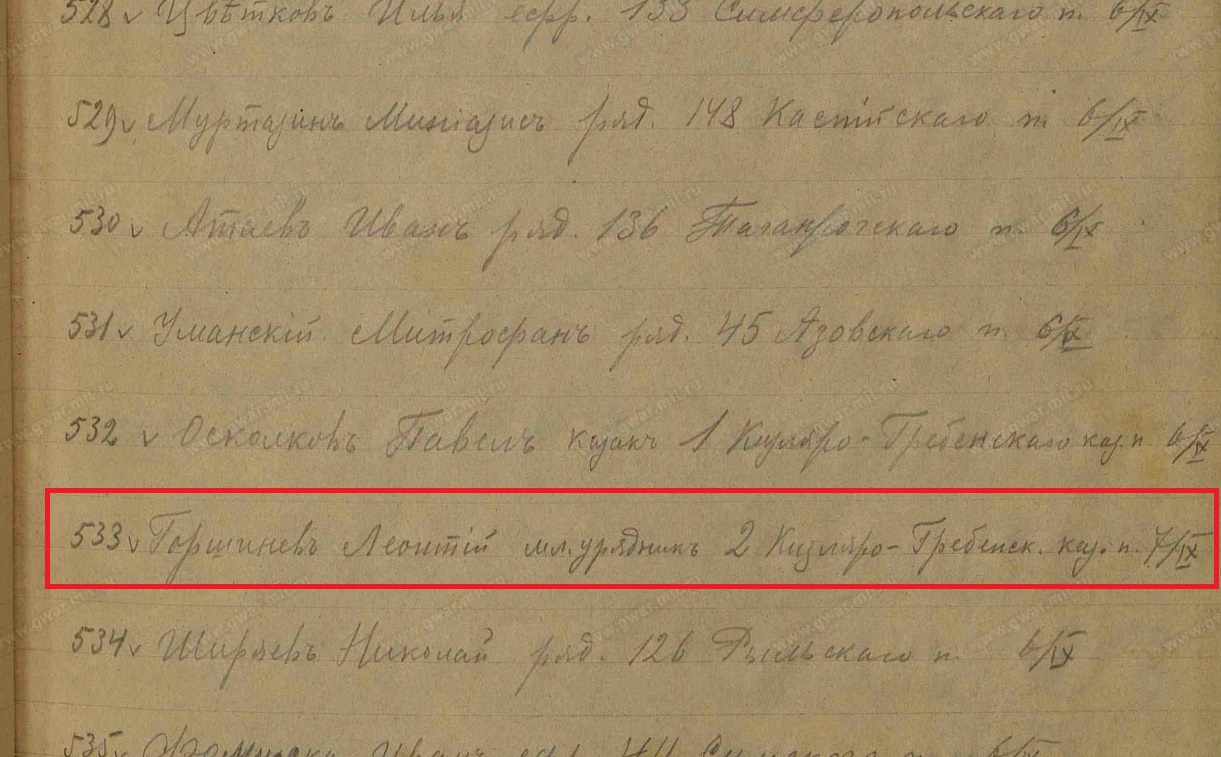 528 v Цвѣтковъ Илья ефр. 133 Симферопольскаго п. 6/IX
529 v Муртазинъ Мингазисъ ряд. 148 Каспійскаго п. 6/IX
530 v Атаевъ Иванъ ряд. 136 Таганрогскаго п. 6/IX
531 v Уманскій Митрофанъ ряд. 45 Азовскаго п. 6/IX
532 v Осколковъ Павелъ казакъ 1 Кизляро-Гребенскаго каз. п. 6/IX
533 v Горшиневъ Леонтій мл. урядникъ 2 Кизляро-Гребенск. каз. п. 7/IX
534 v Ширяевъ Николай ряд. 126 Рыльскаго п. 6/IX
535 v Иванъ п. 6/IX